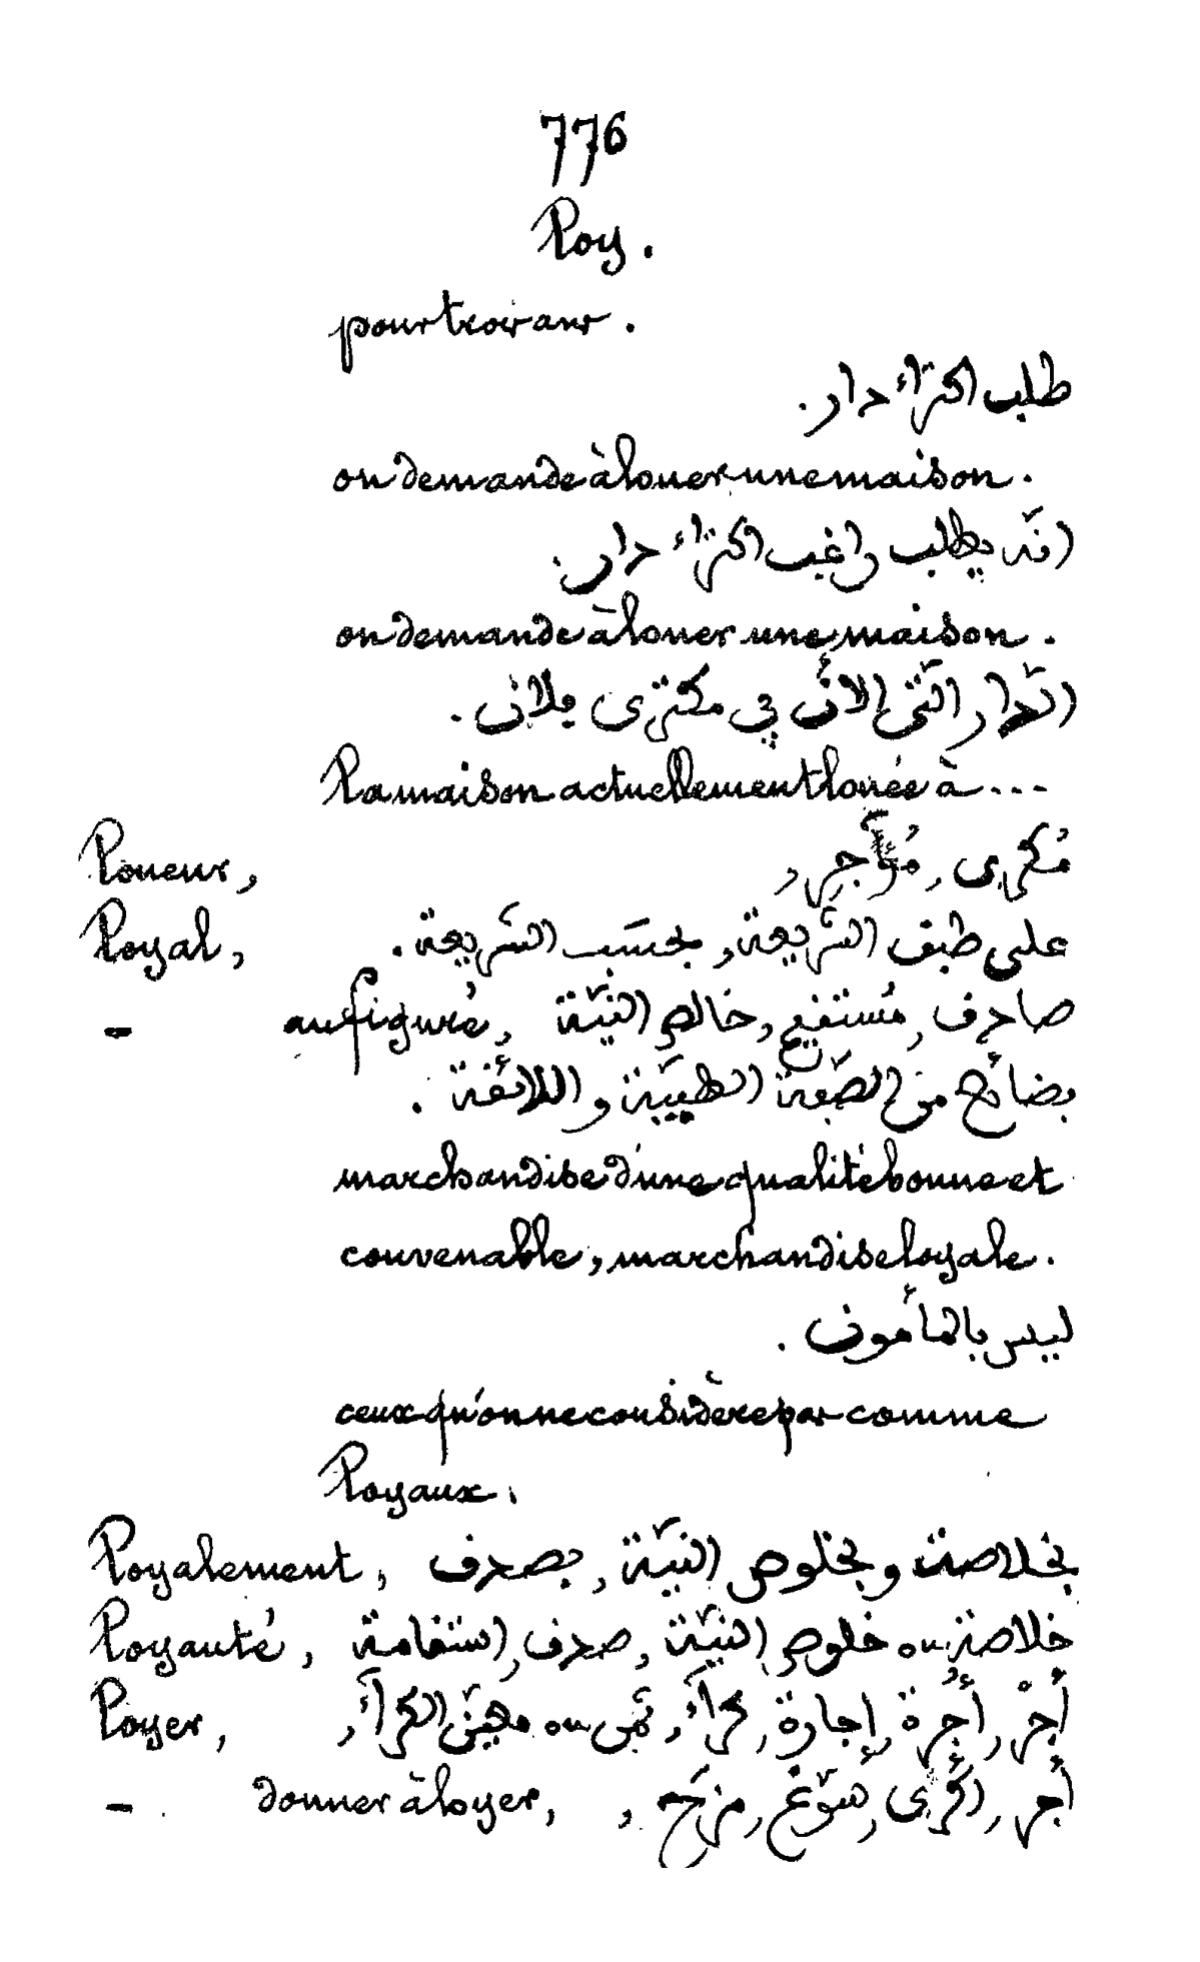 776
Loy.
pour trois ans.
طلب اكتراء دار.
on demande à louer une maison.
انّه يطلب راغب اكتراء دار.
on demande à louer une maison.
الدّار الّتى الأن في مكترى فلان.
La maison actuellement louée à ...
Loueur, مُكرى, مُؤَجّر,
Loyal, على طبق الشّريعة, بحسَب الشّريعة.
- au figuré, صادق, مُستقيم, خالص النيّة
بضائع من الصّبغة الطيّبة و اللائقة.
marchandise d'une qualité bonne et
convenable, marchandise loyale.
ليس بالمأمون.
ceux qu'on ne considère pas comme
Loyaux.
Loyalement, بخلاصة و بخلوص النيّة, بصدق
Loyauté, خلاصة ou خلوص النيّة, صدق, استقامة
Loyer, أجْر, أُجُرة, إجارة, كرآء, ثمن ou الكرآء,
- donner à loyer, أجر, اكرى, سوّغ,